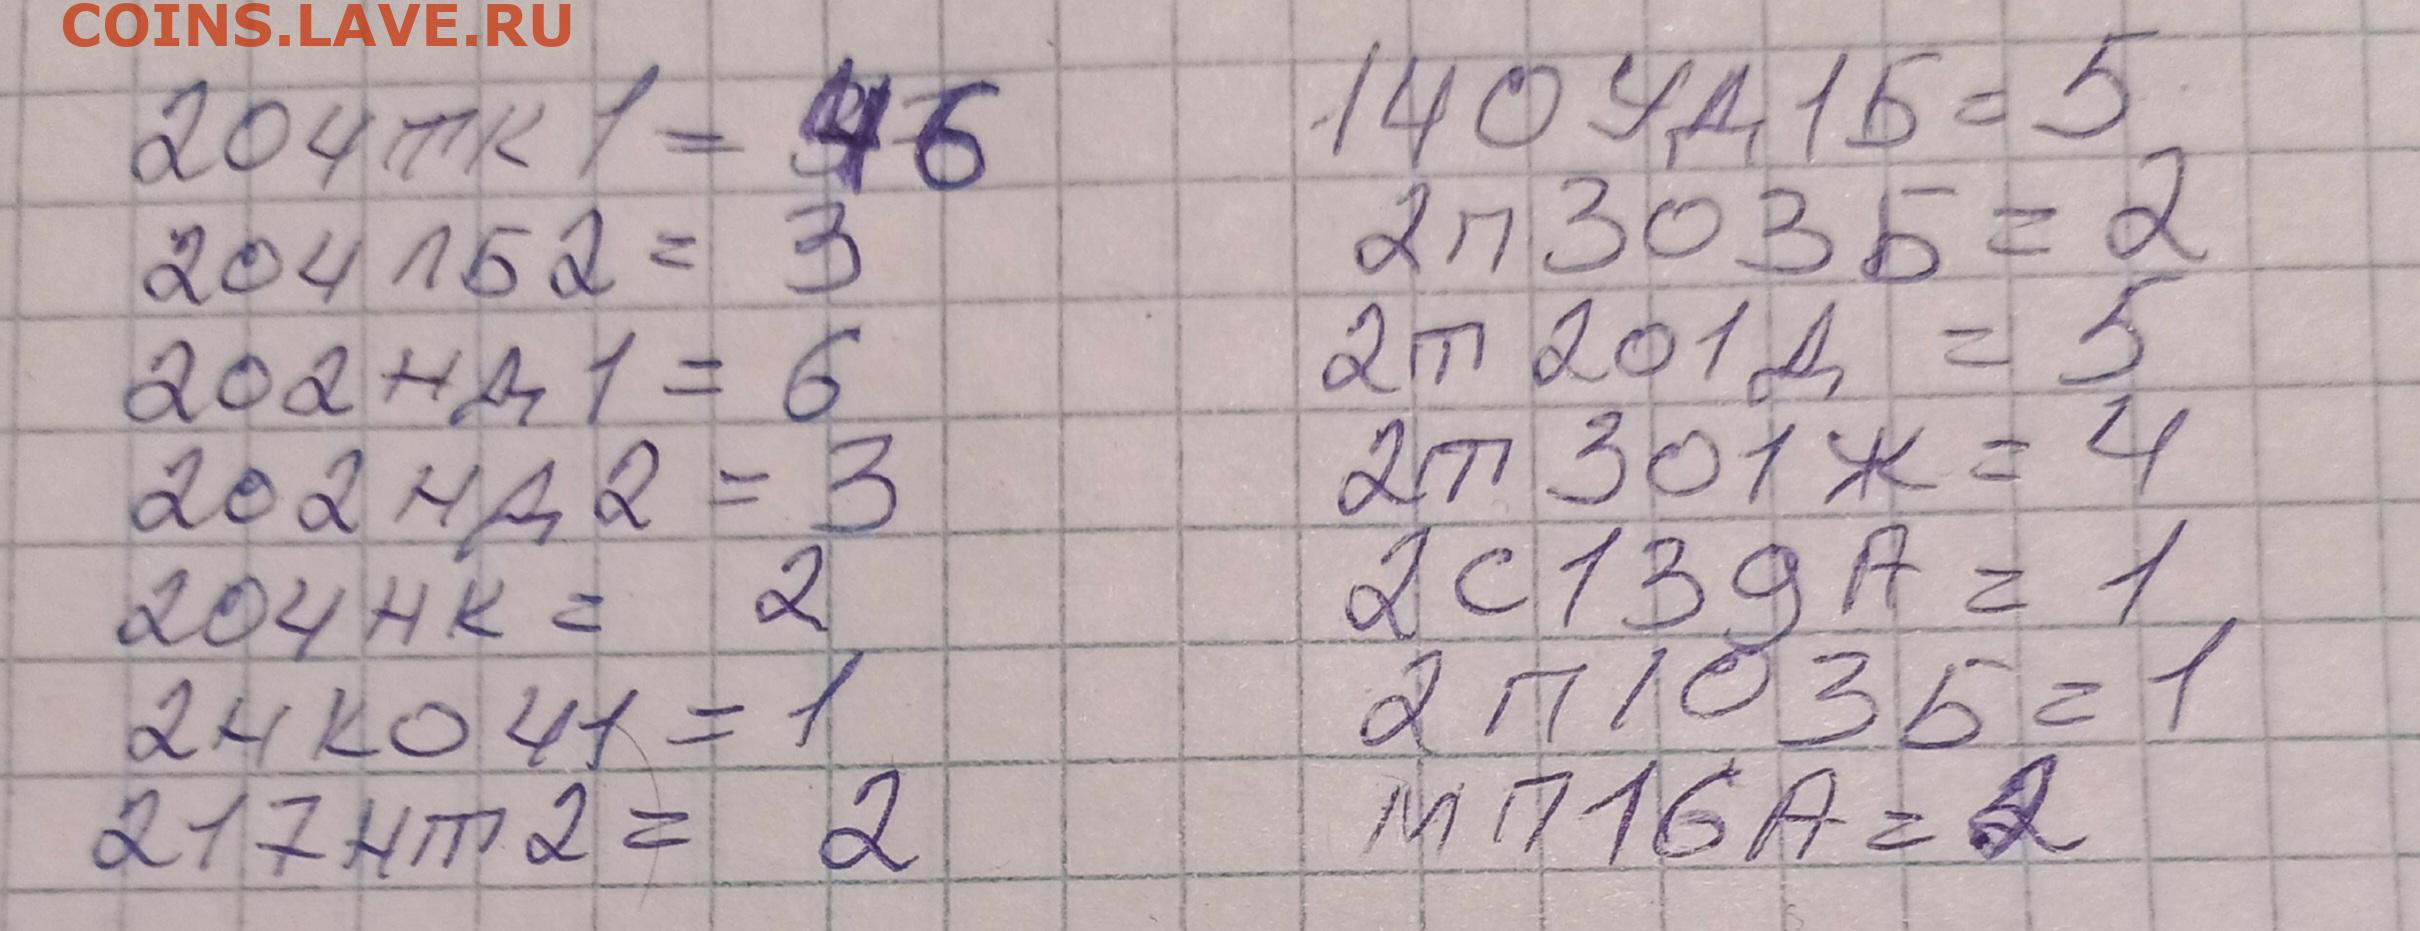 COINS.LAVE.RU
204ТК1 = 16
204ЛБ2 = 3
202НД1 = 6
202НД2 = 3
204НК = 2
2НК041 = 1
217НТ2 = 2
140УД1Б = 5
2П303Б = 2
2Т201Д = 5
2Т301Ж = 4
2С139А = 1
2П103Б = 1
МП16А = 2